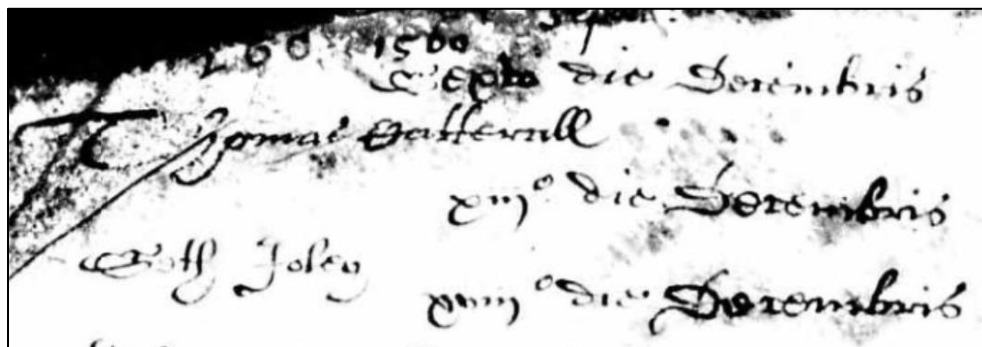 1560
Sexto die Decembris
Thomas Hatterall
xiijº die Decembris
Joley
xviijº die Decembris